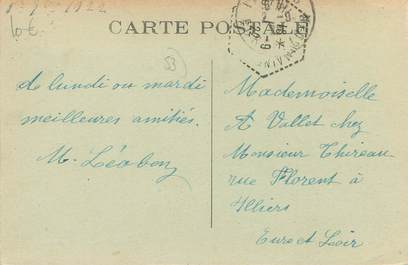 1922
10€
CARTE POSTALE
53
A lundi ou mardi
meilleures amitiés.
M. Léobon
Mademoiselle
A Vallet chez
Monsieur Thireau
rue Florent à
Illiers
Eure et Loir